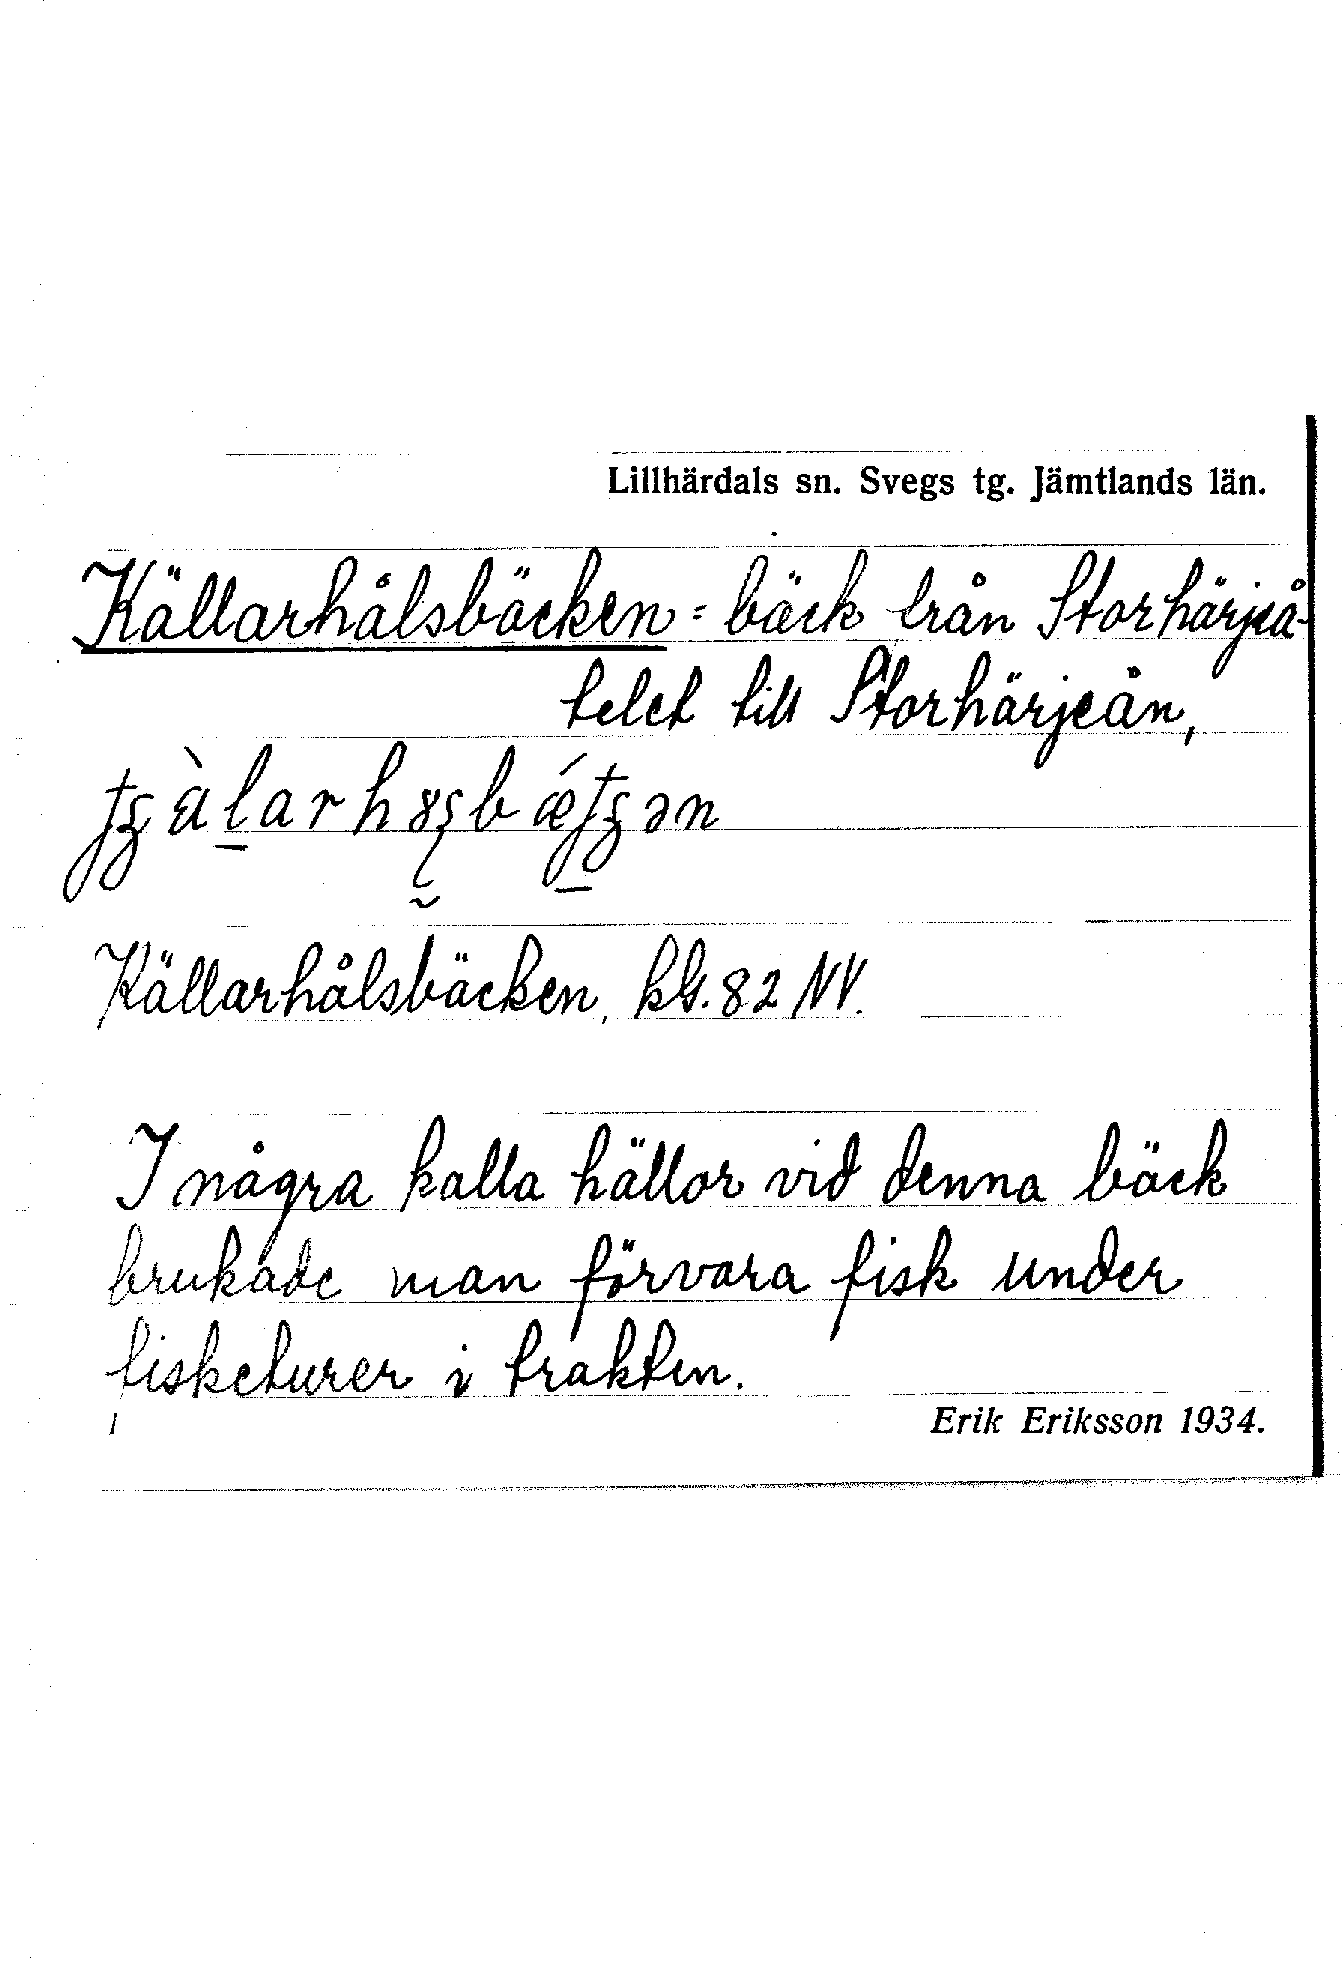 Lillhärdals sn. Svegs tg. Jämtlands län.
Källarhålsbäcken = bäck från Storhärjeå-
telet till Storhärjeån,
Källarhålsbäcken, kbl. 82 NV.
I några kalla hällor vid denna bäck
brukade man förvara fisk under
fisketurer i trakten.
Erik Eriksson 1934.